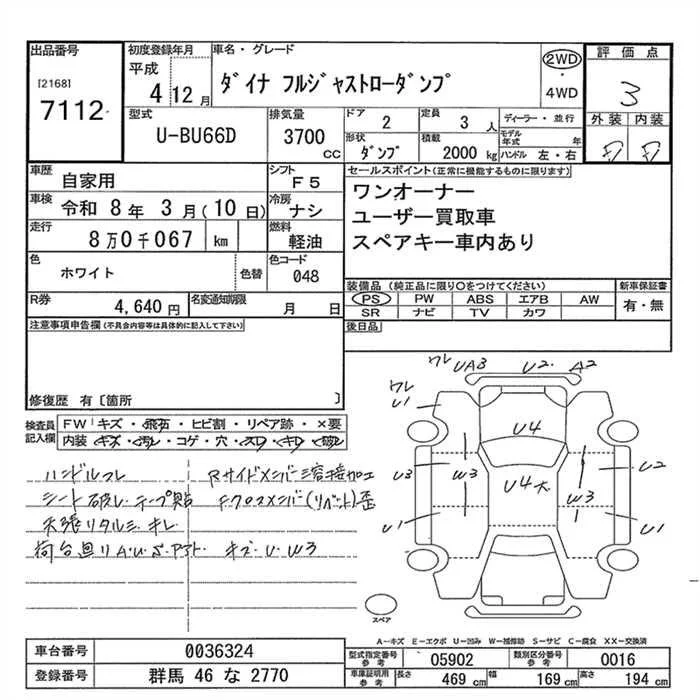 出品番号
[2168]
7112
初度登録年月
平成
4年12月
車名・グレード
ダイナ フルジャストローダンプ
2WD
・
4WD
評価点
3
外装 内装
D D
型式
U-BU66D
排気量
3700
CC
ドア
2
定員
3人
ディーラー・並行
モデル年式 年
ハンドル 左・右
形状
ダンプ
積載
2000kg
車歴
自家用
シフト
F5
車検
令和 8年 3月(10日)
冷房
ナシ
走行
8万0千067 km
燃料
軽油
色
ホワイト
色替
色コード
048
R券
4,640円
名変通知期限
月 日
セールスポイント(正常に機能するものに限ります)
ワンオーナー
ユーザー買取車
スペアキー車内あり
装備品(純正品に限り○をつけてください)
PS PW ABS エアB AW
SR ナビ TV カワ
新車保証書
有・無
後日品
注意事項申告欄(不具合内容等は具体的に記入して下さい)
修復歴 有〔箇所 〕
検査員
記入欄
FW キズ・飛石・ヒビ割・リペア跡・×要
内装 キズ・汚レ・コゲ・穴・スレ・キレ・破レ
ハンドルスレ
シート破レテープ貼
天張リタルミ、キレ
荷台廻リA・U・S・アオリ・キズ・U・W3
Rサイド×ンバー溶接加工
F.クロス×ンバー(リベット)歪
ワレ UA3 U2・A2
ワレ
U1
U4
U3 W3 U4大 W3 U2
U1 U1
スペア
A−キズ E−エクボ U−凹み W−補修跡 S−サビ C−腐食 XX−交換済
車台番号
0036324
登録番号
群馬 46 な 2770
型式指定番号
参考
05902
類別区分番号
参考
0016
車庫証明用
参考
長さ
469cm
幅
169cm
高さ
194cm